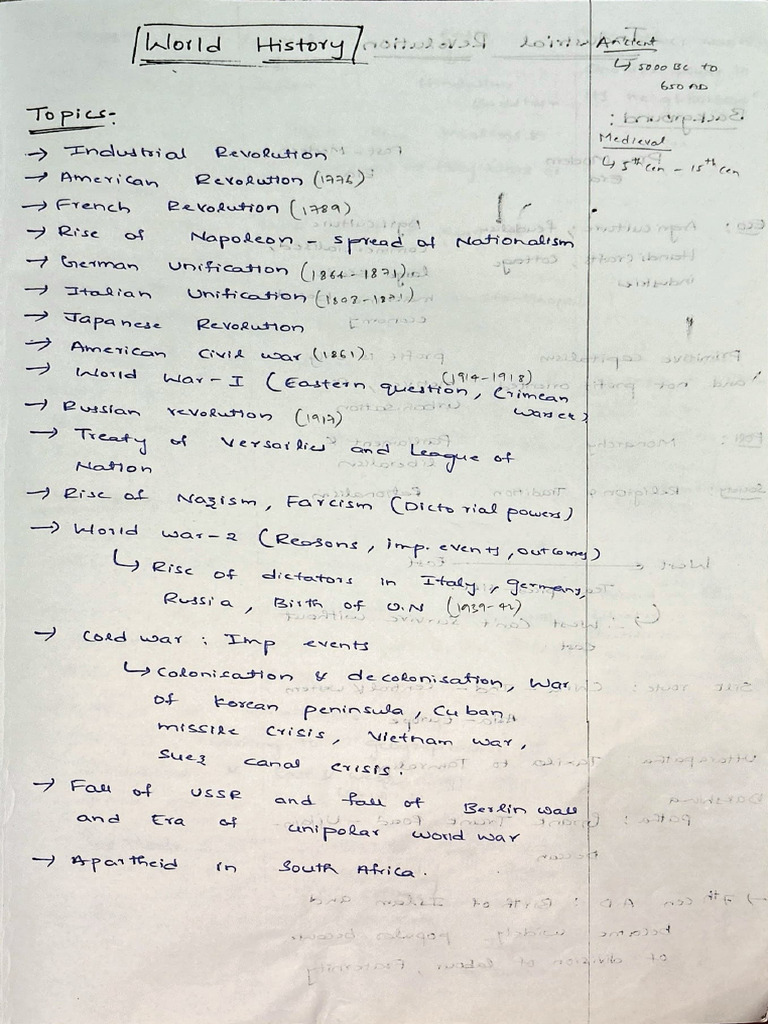 World History
Ancient
↳ 5000 BC to
650 AD
Medieval
↳ 5th cen - 15th cen
Topics:-
→ Industrial Revolution
→ American Revolution (1776)
→ French Revolution (1789)
→ Rise of Napoleon - spread of Nationalism
→ German Unification (1864-1871)
→ Italian Unification
→ Japanese Revolution
→ American Civil war (1861)
(1914-1918)
→ World War-I (Eastern question, Crimean
→ Russian revolution (1917)
→ Treaty of Versailies and League of
Nation
→ Rise of Nazism, Farcism (Dictorial powers)
→ World war-2 (Reasons, imp. events, outcomes)
↳ Rise of dictators in Italy, germany,
Russia, Birth of U.N
→ Cold war : Imp events
↳ colonisation & decolonisation, War
of Korean peninsula, Cuban
missile crisis, Vietnam war,
suez canal crisis.
→ Fall of USSR and fall of Berlin wall
and Era of unipolar world war
→ Apartheid in South Africa.